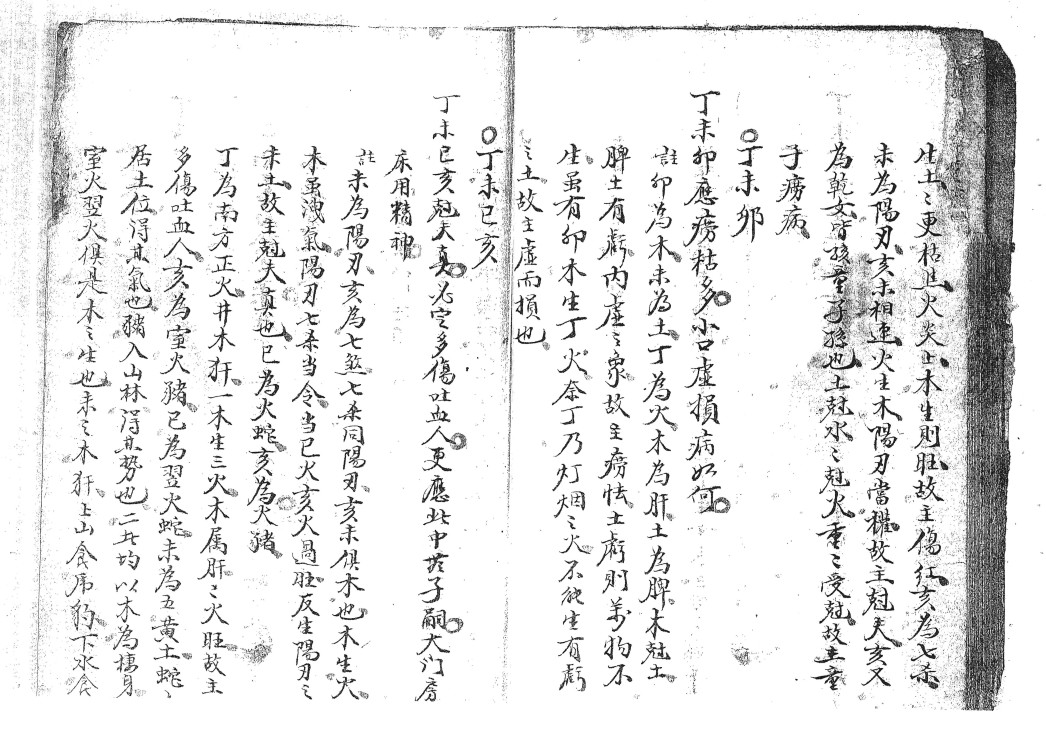 生土〻更枯且火炎土木生則旺故主傷紅亥為七杀
未為陽刃亥未相連火生木陽刃當權故主尅夫亥又
為乾女皆孩童子孫也土尅水〻尅火重〻受尅故主童
子癆病
丁未卯
丁未卯應癆枯多小口虛損病如何
註卯為木未為土丁為火木為肝土為脾木尅土
脾土有虧內虛之象故主癆怯土虧則萬物不
生虽有卯木生丁火奈丁乃灯烟之火不能生有虧
之土故主虛而損也
丁未巳亥
丁未巳亥尅夫真必定多傷吐血人更應此中苦子嗣大门房
床用精神
註未為陽刃亥為七煞七杀同陽刃亥未俱木也木生火
木虽洩氣陽刃七杀当令当巳火亥火過旺反生陽刃之
未土故主尅夫真也巳為火蛇亥為火猪
丁為南方正火井木犴一木生三火木属肝〻火旺故主
多傷吐血人亥為室火豬巳為翌火蛇未為五黄土蛇〻
居土位得其氣也豬入山林得其勢也二此均以木為棲身
室火翌火俱是木之生也未之木犴上山食虎豹下水食